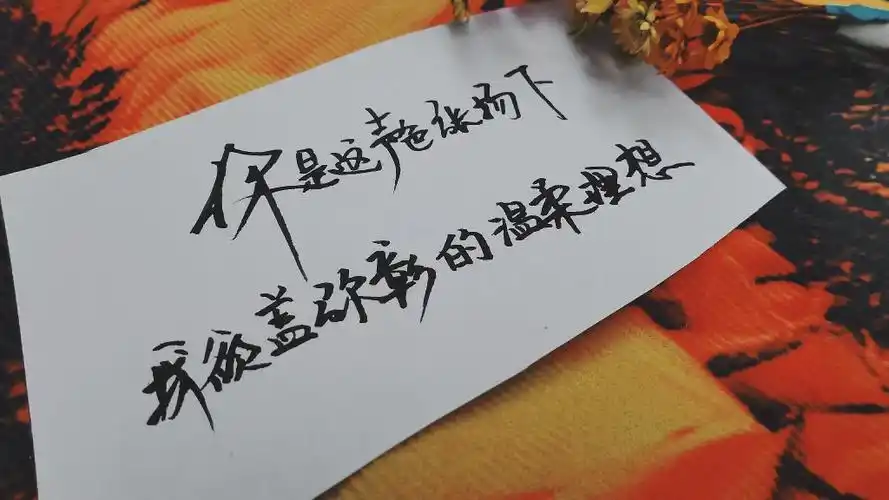 你是这声色张扬下
我欲盖弥彰的温柔理想